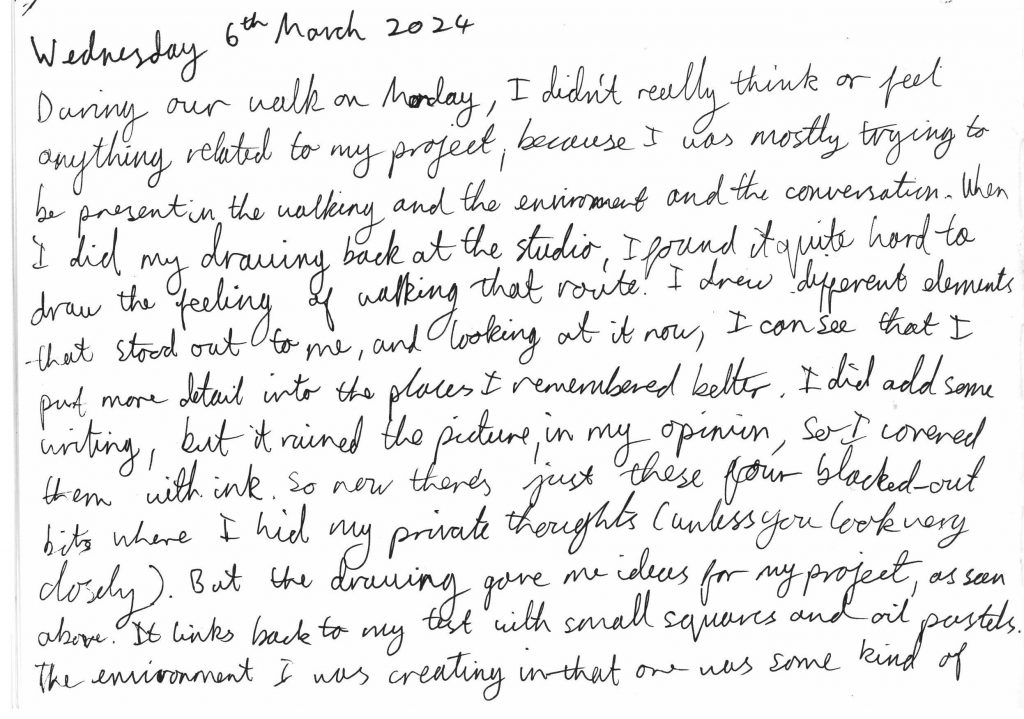 Wednesday 6th March 2024
During our walk on Monday, I didn't really think or feel
anything related to my project, because I was mostly trying to
be present in the walking and the environment and the conversation. When
I did my drawing back at the studio, I found it quite hard to
draw the feeling of walking that route. I drew different elements
that stood out to me, and looking at it now, I can see that I
put more detail into the places I remembered better. I did add some
writing, but it ruined the picture, in my opinion, so I covered
them with ink. So now there's just these four blacked-out
bits where I hid my private thoughts (unless you look very
closely). But the drawing gave me ideas for my project, as seen
above. It links back to my test with small squares and oil pastels.
The environment I was creating in that one was some kind of